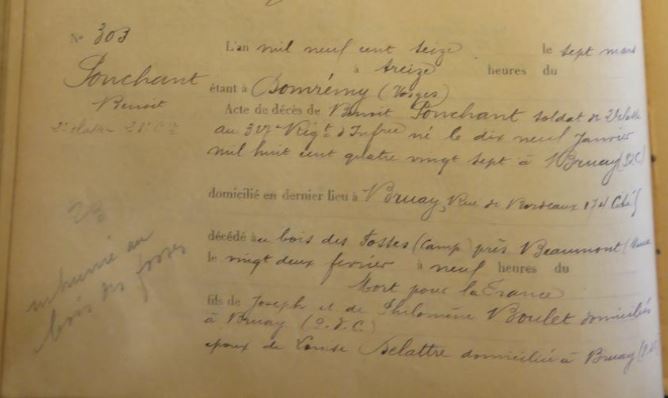 N° 303
Souchant
Benoit
2e classe 21e Cie
23
inhumé au
bois des fosses
L'an mil neuf cent seize le sept mars
à treize heures du
étant à Domrémy (Vosges)
Acte de décès de Benoit Souchant soldat de 2e classe
au 327e Régt d'Infrie né le dix neuf Janvier
mil huit cent quatre vingt sept à Bruay (P.d.C)
domicilié en dernier lieu à Bruay, Rue de Bordeaux
décédé au bois des Fosses (Camp) près Beaumont (Meuse
le vingt deux fevrier à neuf heures du
Mort pour la France
fils de Joseph et de Philomène Boulet domiciliés
à Bruay (P.d.C.)
époux de Louise Delattre domiciliée à Bruay